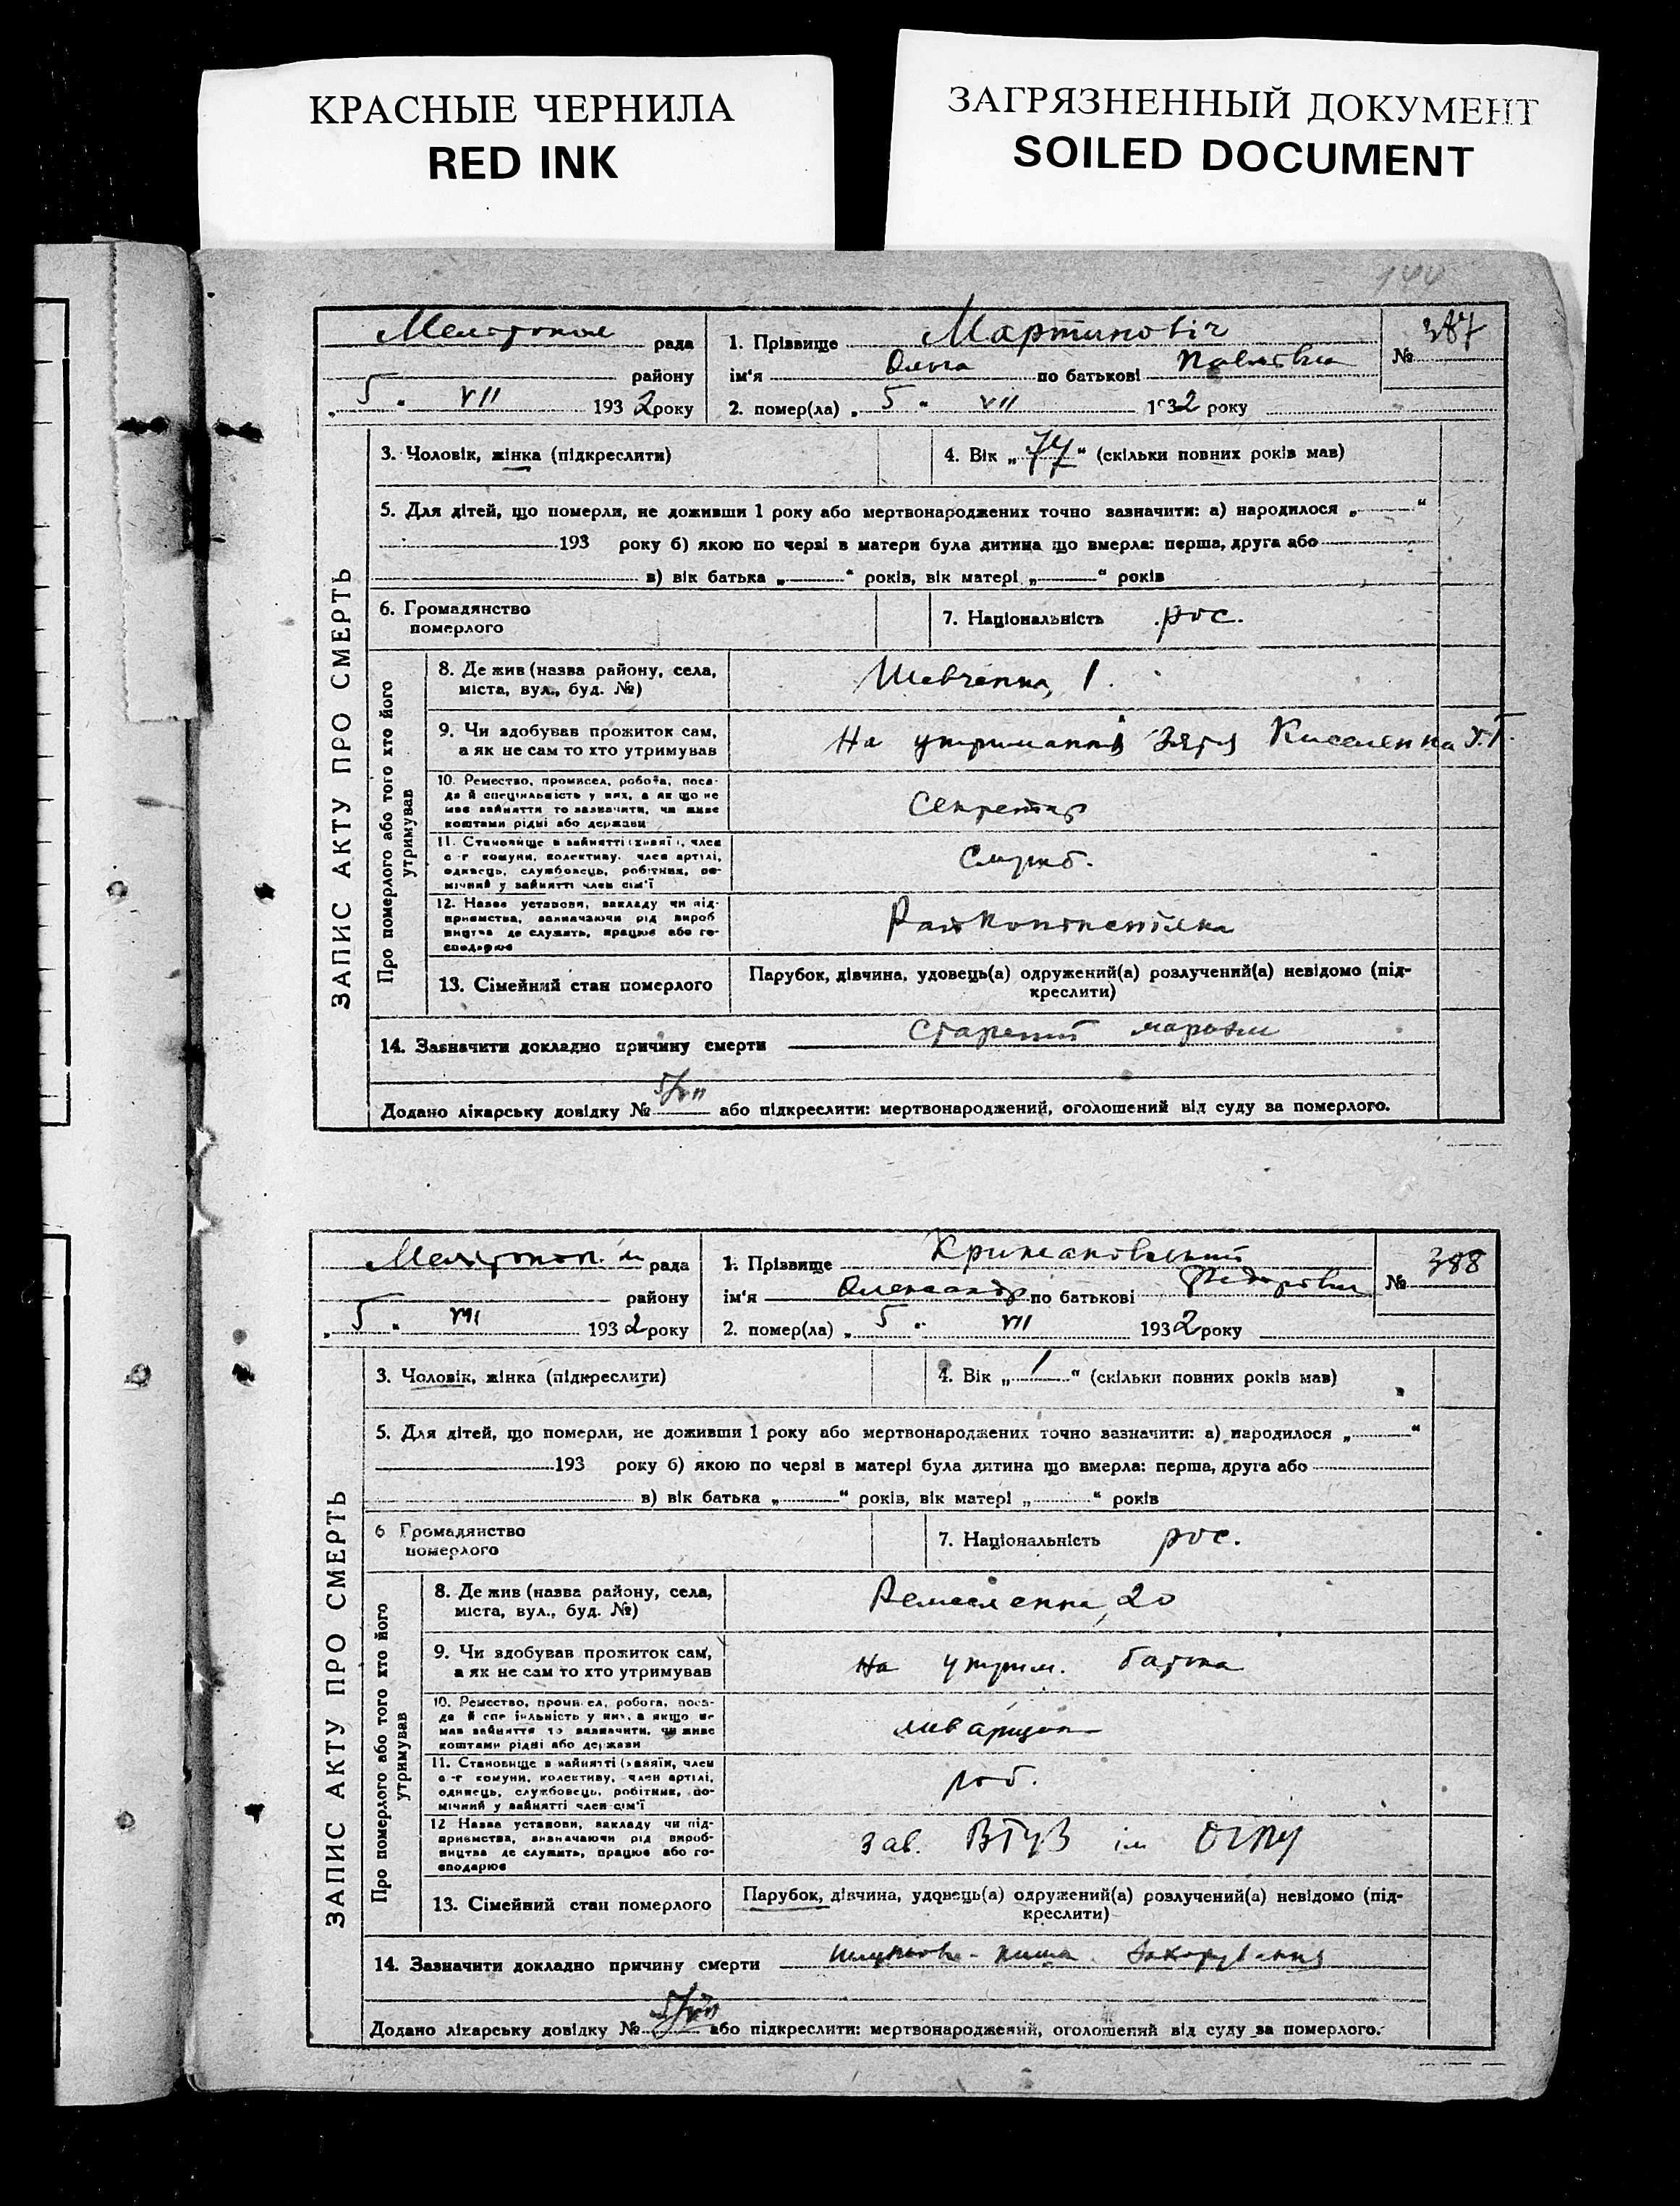 КРАСНЫЕ ЧЕРНИЛА
RED INK
ЗАГРЯЗНЕННЫЙ ДОКУМЕНТ
SOILED DOCUMENT
ЗАПИС АКТУ ПРО СМЕРТЬ
рада
району
„ 5 “ VII 1932 року
1. Прізвище Мартиновіч
ім'я Ольга по батькові Павлівна
2. помер(ла) „ 5 “ VII 1932 року
№ 387
3. Чоловік, жінка (підкреслити)
4. Вік „ 77 “ (скільки повних років мав)
5. Для дітей, що померли, не доживши 1 року або мертвонароджених точно зазначити: а) народилося „ “
193 року б) якою по черзі в матери була дитина що вмерла: перша, друга або
в) вік батька „ “ років, вік матері „ “ років
6. Громадянство
померлого
7. Національність рос.
Про померлого або того хто його
утримував
8. Де жив (назва району, села,
міста, вул., буд. №)
Шевченка, 1.
9. Чи здобував прожиток сам,
а як не сам то хто утримував
На утриманні зятя
10. Ремество, промисел, робота, поса-
да й спеціяльність у них, а як що не
мав зайняття то зазначити, чи живе
коштами рідні або держави
Секретар
11. Становище в зайнятті (хазяї, член
с-г комуни, колективу, член артілі,
одинець, службовець, робітник, по-
мічний у зайнятті член сім'ї
Служб.
12. Назва установи, закладу чи під-
приємства, зазначаючи рід вироб
ництва де служить, працює або го-
сподарює
13. Сімейний стан померлого
Парубок, дівчина, удовець(а) одружений(а) розлучений(а) невідомо (під-
креслити)
14. Зазначити докладно причину смерти Старечий маразм
Додано лікарську довідку № 5/VII або підкреслити: мертвонароджений, оголошений від суду за померлого.
ЗАПИС АКТУ ПРО СМЕРТЬ
рада
району
„ 5 “ VII 1932 року
1. Прізвище Крижановський
ім'я Олександр по батькові Федорович
2. помер(ла) „ 5 “ VII 1932 року
№ 388
3. Чоловік, жінка (підкреслити)
4. Вік „ 1 “ (скільки повних років мав)
5. Для дітей, що померли, не доживши 1 року або мертвонароджених точно зазначити: а) народилося „ “
193 року б) якою по черзі в матері була дитина що вмерла: перша, друга або
в) вік батька „ “ років, вік матері „ “ років
6 Громадянство
померлого
7. Національність рос.
Про померлого або того хто його
утримував
8. Де жив (назва району, села,
міста, вул., буд. №)
20
9. Чи здобував прожиток сам,
а як не сам то хто утримував
На утрим. батька
10. Ремество, промисел, робота, поса-
да й спеціяльність у них, а якщо не
мав зайняття то зазначити, чи живе
коштами рідні або держави
11. Становище в зайнятті (хазяїн, член
с-г комуни, колективу, член артілі,
одинець, службовець, робітник, по-
мічний у зайнятті член сім'ї
роб.
12 Назва установи, закладу чи під-
приємства, визначаючи рід вироб-
ництва де служить, працює або го-
сподарює
зав. ВТУЗ ім ОГПУ
13. Сімейний стан померлого
Парубок, дівчина, удовець(а) одружений(а) розлучений(а) невідомо (під-
креслити)
14. Зазначити докладно причину смерти
Додано лікарську довідку № 5/VII або підкреслити: мертвонароджений, оголошений від суду за померлого.